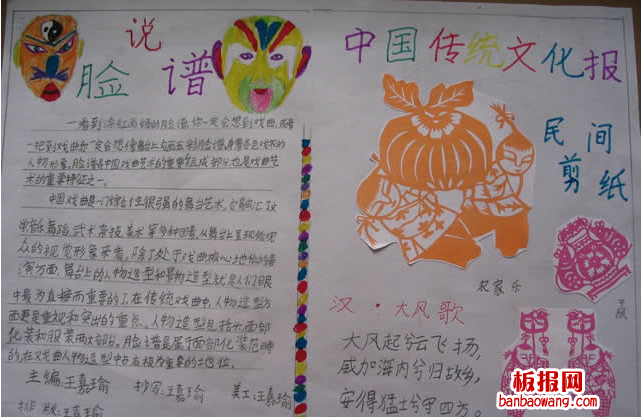 说
脸 谱
一看到涂红画绿的脸谱,你一定会想到戏曲,或者
一提到戏曲你一定会想像舞台上勾画五彩脸谱,身着各色戏衣的
人物形象。脸谱是中国戏曲艺术的重要组成部分,也是戏曲艺
术的重要特征之一。
中国戏曲是一门综合性很强的舞台艺术,它融汇了文
学音乐舞蹈,武术杂技,美术等多种因素,从舞台呈现给观
众的视觉形象来看,除了处于戏曲核心地位的表
演方面,舞台上的人物造型和景物造型就是人们眼
中最为直接而重要的了,在传统戏曲中,人物造型方
面更是重视和突出的重点。人物造型包括头面部
化装和服装两大部分。脸谱是属于面部化装范畴
的,在戏曲人物造型中占有极为重要的地位。
主编:王嘉瑜 抄写:王嘉瑜 美工:王嘉瑜
排版:王嘉瑜
中国传统文化报
民间
剪纸
农家乐
汉·大风歌
大风起兮云飞扬,
威加海内兮归故乡,
安得猛士兮守四方。
板报网
banbaowang.com